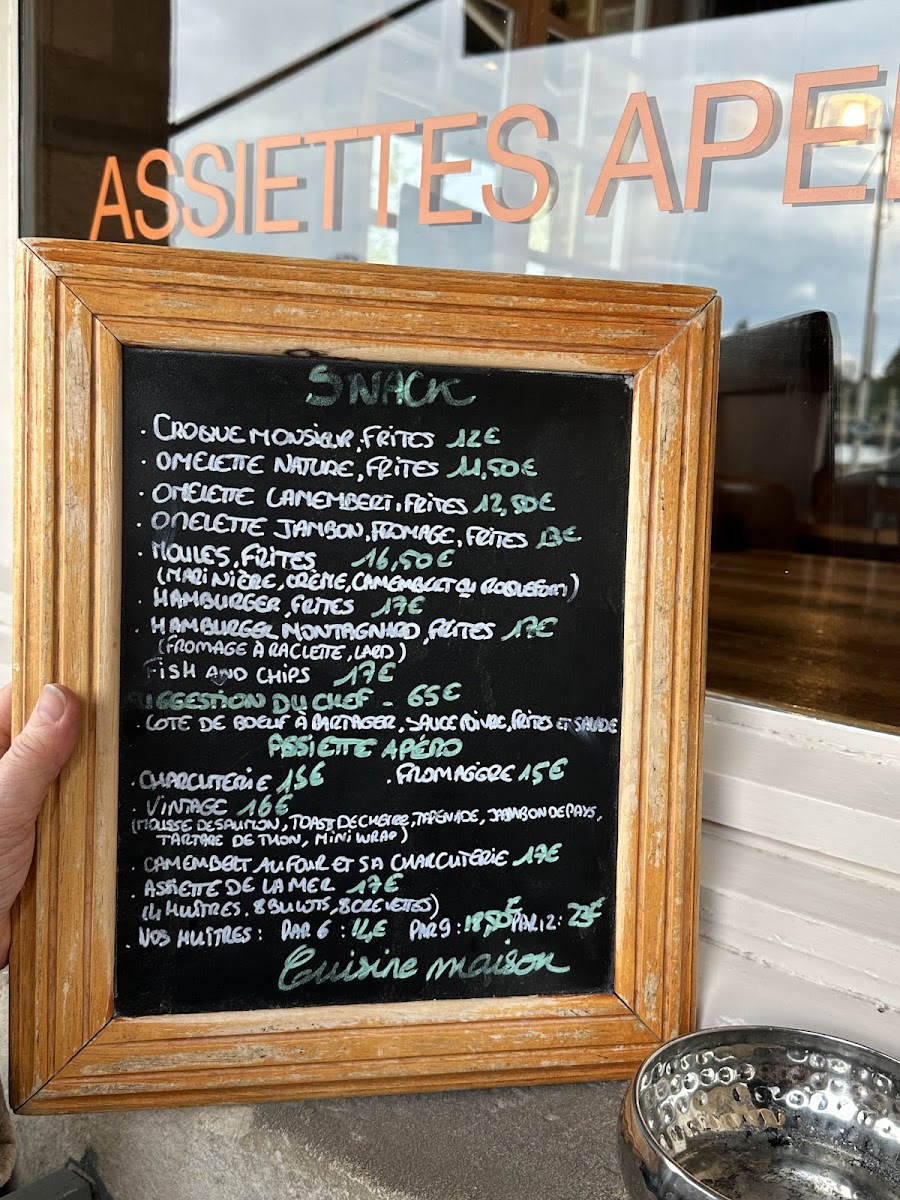 ASSIETTES APE
SNACK
· CROQUE MONSIEUR, FRITES 12€
· OMELETTE NATURE, FRITES 11,50€
· OMELETTE CAMEMBERT, FRITES 12,50€
· OMELETTE JAMBON, FROMAGE, FRITES 13€
· MOULES, FRITES 16,50€
(MARINIÈRE, CRÈME, CAMEMBERT OU ROQUEFORT)
· HAMBURGER, FRITES 17€
· HAMBURGER MONTAGNARD, FRITES 17€
(FROMAGE À RACLETTE, LARD)
FISH AND CHIPS 17€
SUGGESTION DU CHEF - 65€
· COTE DE BOEUF À PARTAGER, SAUCE POIVRE, FRITES ET SALADE
ASSIETTE APÉRO
· CHARCUTERIE 15€ · FROMAGÈRE 15€
· VINTAGE 16€
(MOUSSE DE SAUMON, TOAST DE CHEVRE, TAPENADE, JAMBON DE PAYS,
TARTARE DE THON, MINI WRAP)
· CAMEMBERT AU FOUR ET SA CHARCUTERIE 17€
· ASSIETTE DE LA MER 17€
(4 HUÎTRES, 8 BULOTS, 8 CREVETTES)
· NOS HUÎTRES : PAR 6 : 14€ PAR 9 : 18,50€ PAR 12 : 23€
Cuisine maison